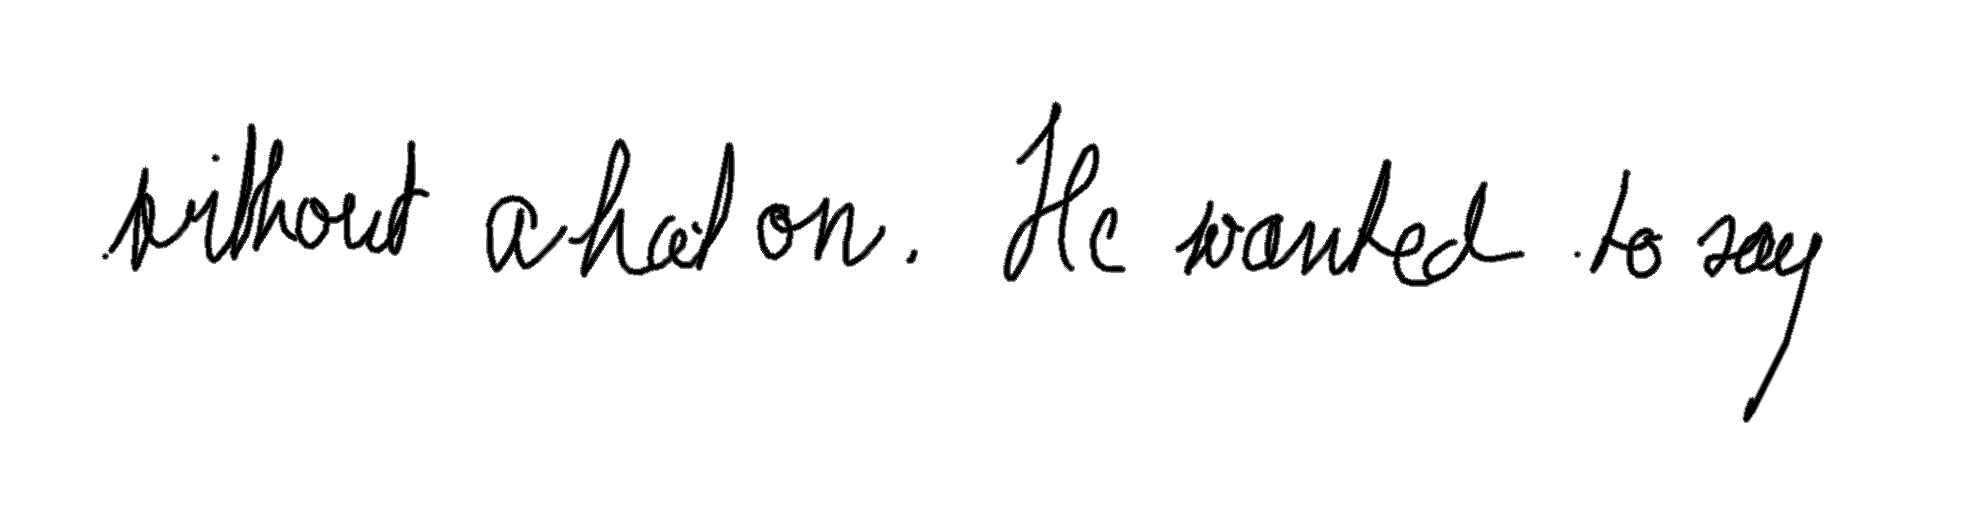 without a hat on. He wanted to say